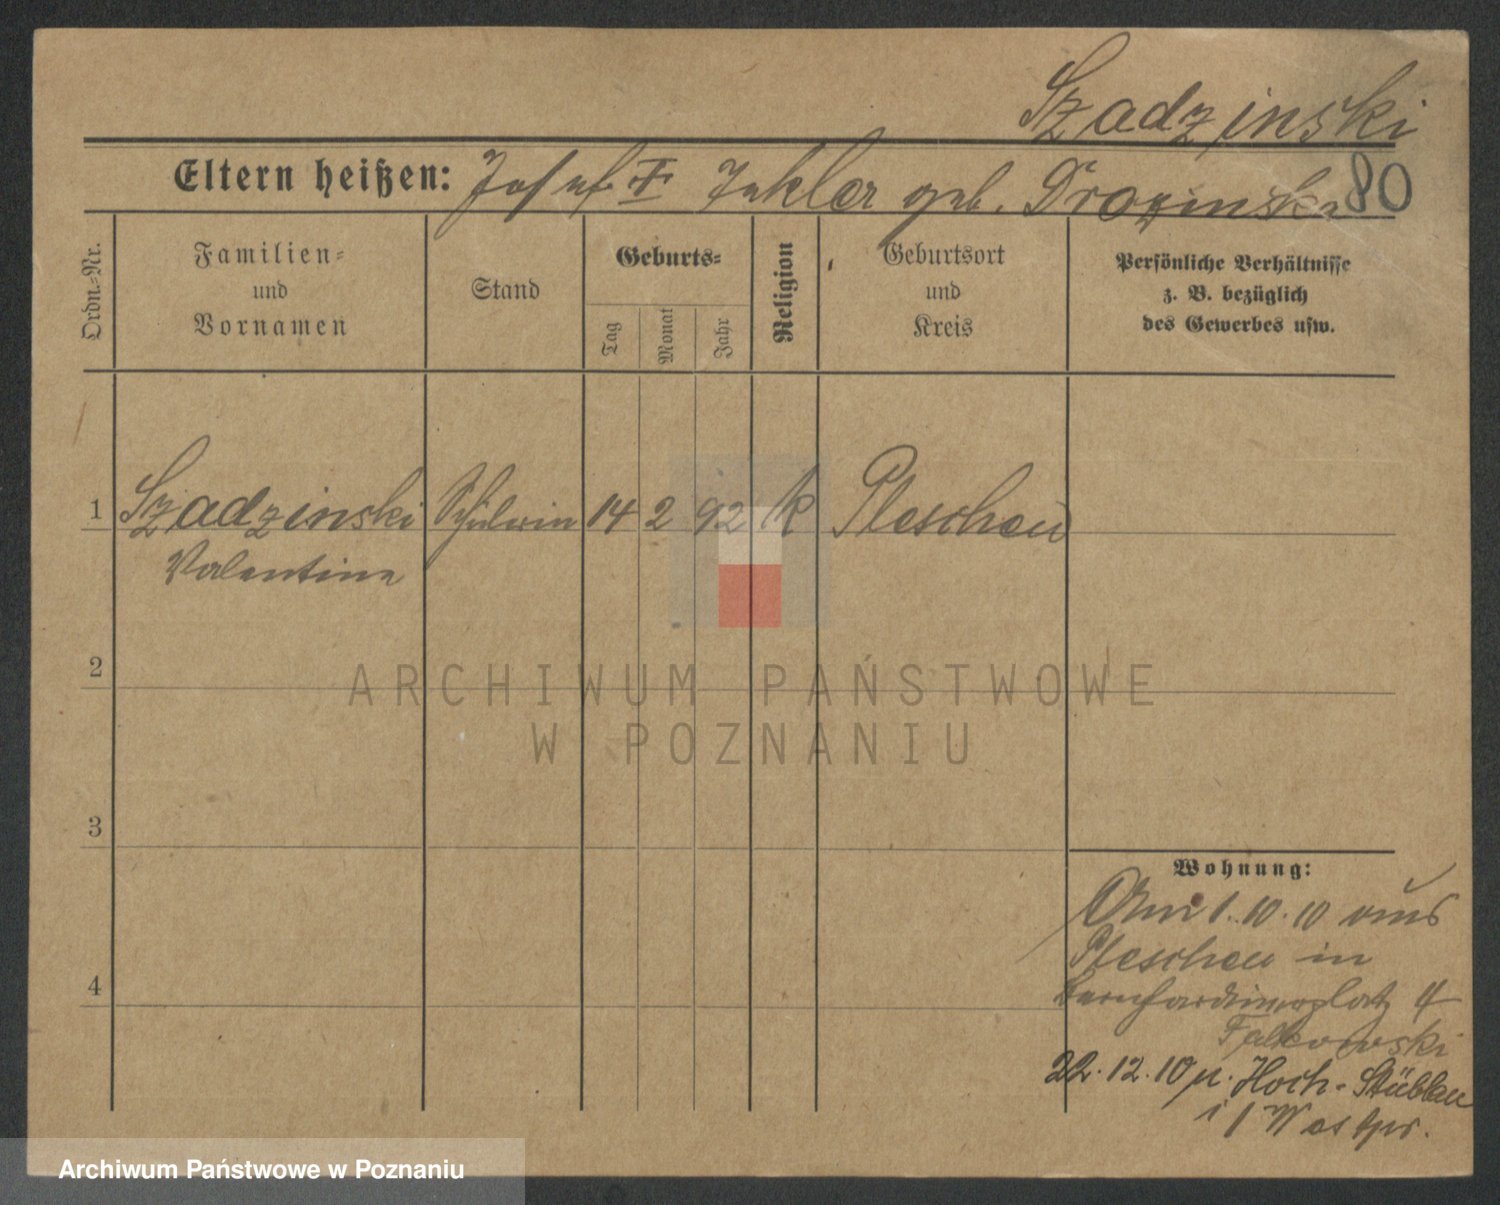 Szadzinski
Eltern heißen: Josef geb. 80
Ordn.-Nr.
Familien-
und
Vornamen
Stand
Geburts-
Tag
Monat
Jahr
Religion
Geburtsort
und
Kreis
Persönliche Verhältnisse
z. B. bezüglich
des Gewerbes usw.
1 Szadzinski 14 2 92 k Pleschen
Valentine
2
3
4
Wohnung:
Am 1.10.10 aus
Pleschen in
Bernhardinerplatz 4
Falkowski
22.12.10 n. Hoch-Stüblau
i / Westpr.
ARCHIWUM PAŃSTWOWE
W POZNANIU
Archiwum Państwowe w Poznaniu